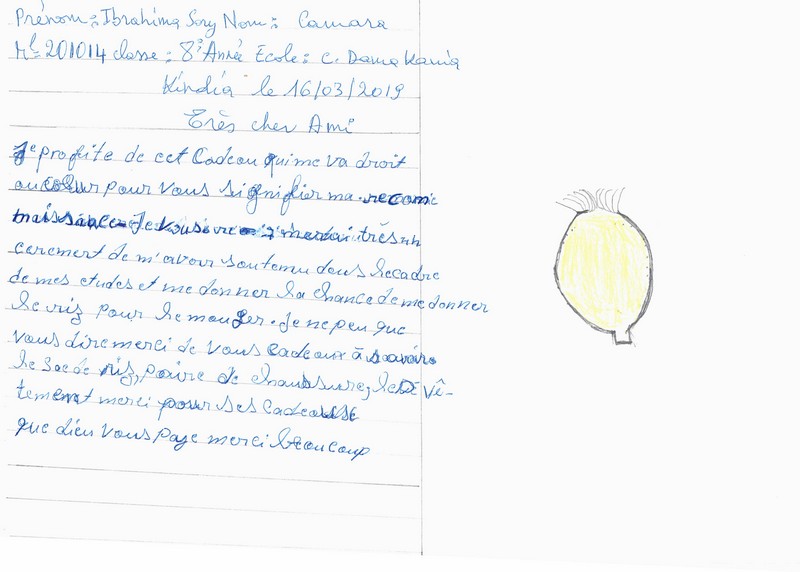 Prénom : Ibrahima Sory Nom : Camara
Mle 201014 classe : 8e Année Ecole : C. Dama Kania
Kindia le 16/03/2019
Très cher Ami
Je profite de cet Cadeau qui me va droit
au cœur pour vous signifier ma reconnai
naissance Je vous remerciai très sin
cerement de m'avoir soutenu dans le cadre
de mes etudes et me donner la chance de me donner
le riz pour le manger. Je ne peu que
vous dire merci de vous cadeaux à savoir
le Sac de riz, paire de chaussure, le vê-
tement merci pour ses cadeau
que dieu vous paye merci beaucoup